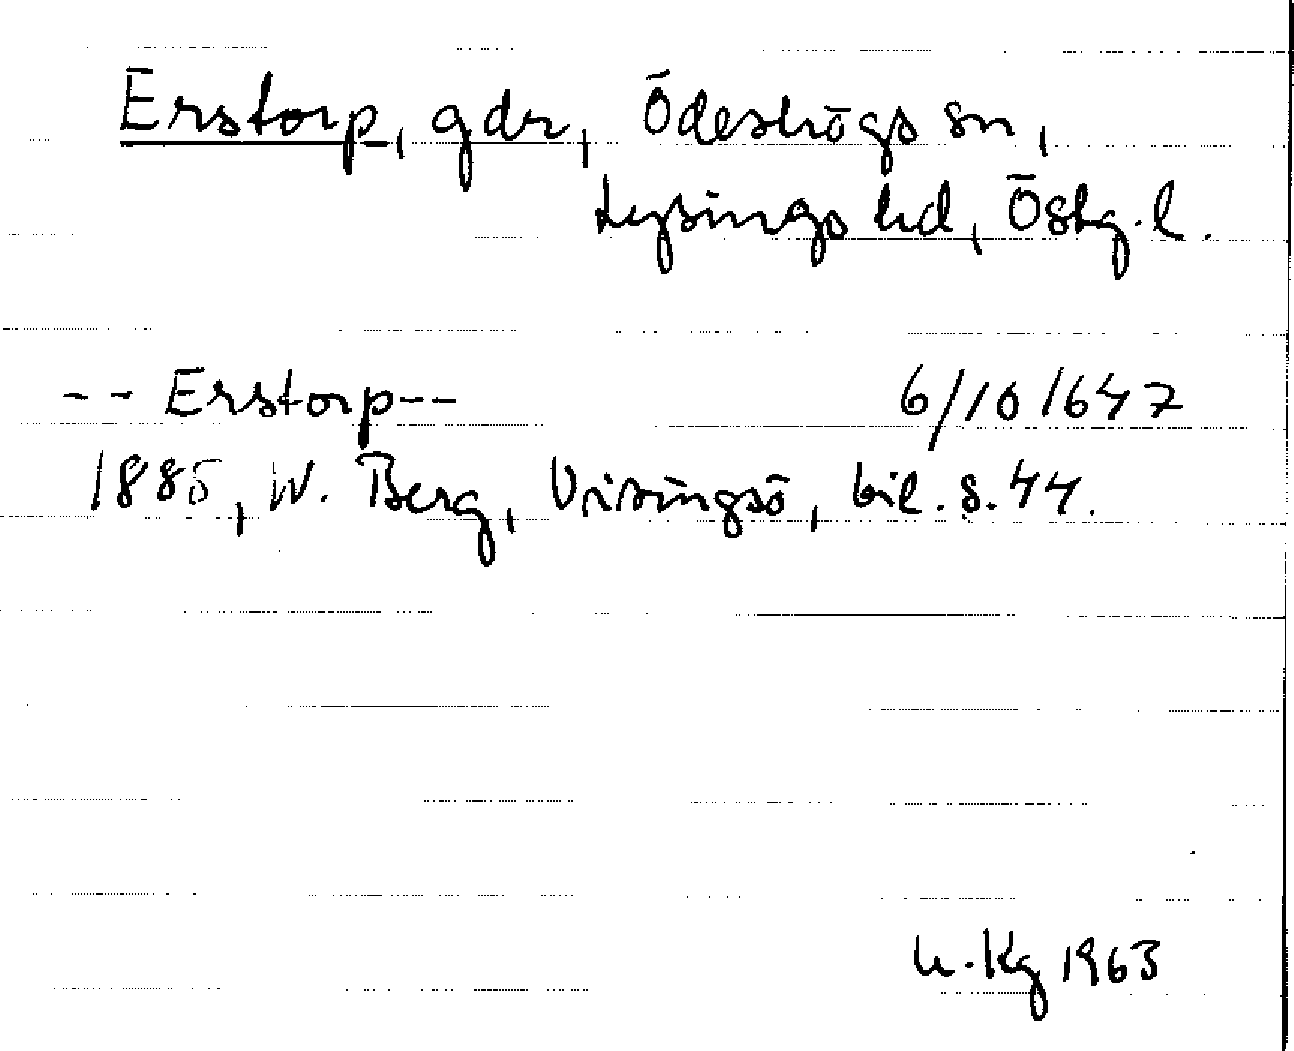 Erstorp, gdr, Ödeshögs sn,
Lysings hd, Östg.l.
-- Erstorp -- 6/10 1647
1885, W. Berg, Visingsö, bil. s. 44.
h.Kg 1963